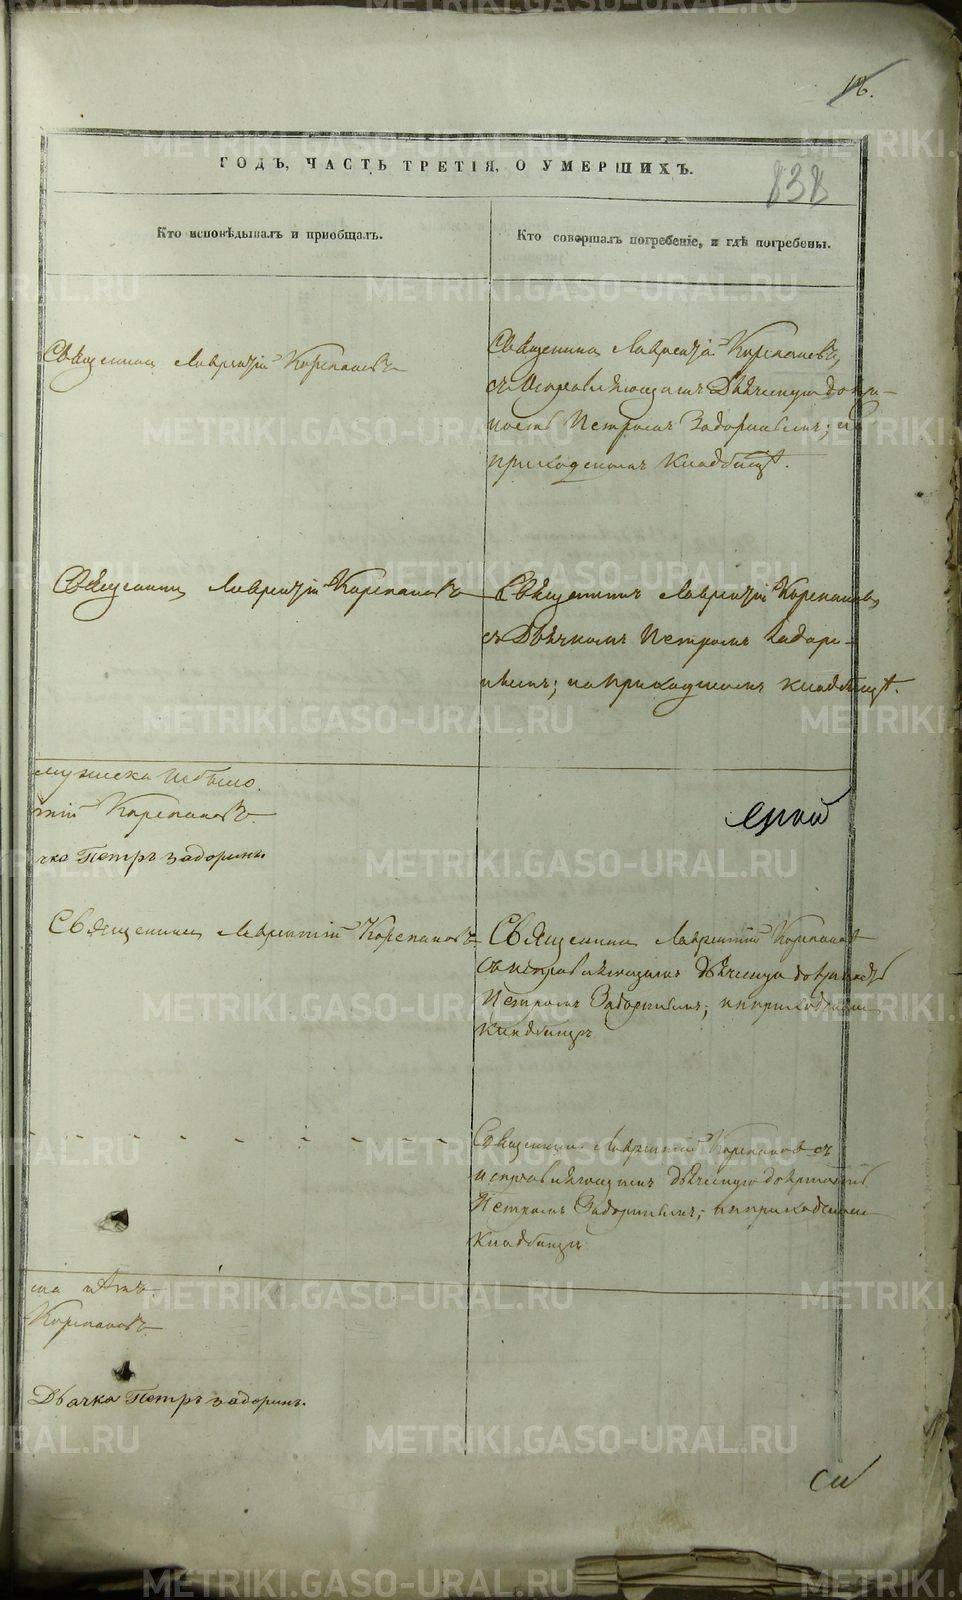 16.
838
ГОДЪ, ЧАСТЬ ТРЕТІЯ, О УМЕРШИХЪ.
Кто исповѣдывалъ и пріобщалъ.
Кто совершалъ погребеніе, и гдѣ погребены.
Священникъ Лаврентій Корепановъ
Священникъ Лаврентій Корепановъ,
съ Исправляющимъ Дьяческую должн-
ность Петромъ Задоринымъ; на
приходскомъ кладбищѣ.
Священникъ Лаврентій Корепановъ
Священникъ Лаврентій Корепановъ,
съ Дьячкомъ Петромъ Задори-
нымъ; на приходскомъ кладбищѣ.
мужеска не было.
тій Корепановъ
чка Петръ Задоринъ
Священникъ Лаврентій Корепановъ
Священникъ Лаврентій Корепановъ
съ исправляющимъ дьяческую должность
Петромъ Задоринымъ; на приходскомъ
кладбищѣ
Священникъ Лаврентій Корепановъ съ
исправляющимъ дьяческую должность
Петромъ Задоринымъ; на приходскомъ
кладбищѣ
Корепановъ
Дьячка Петръ Задоринъ.
METRIKI.GASO-URAL.RU